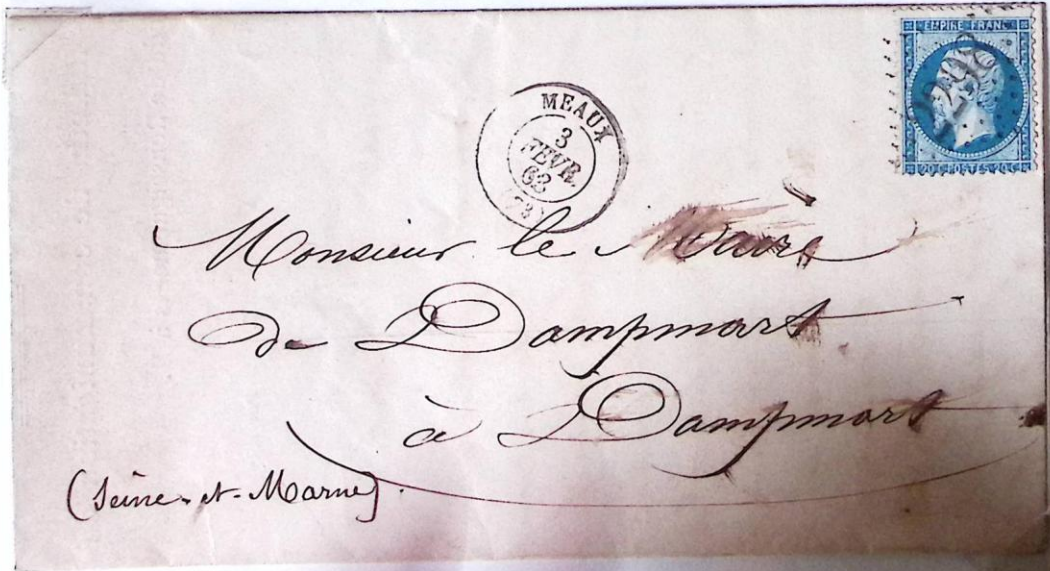 EMPIRE FRANC
2298
20 C POSTES 20 C
MEAUX
3
FEVR.
62
(73)
Monsieur le Maire
de Dampmart
à Dampmart
(Seine-et-Marne).